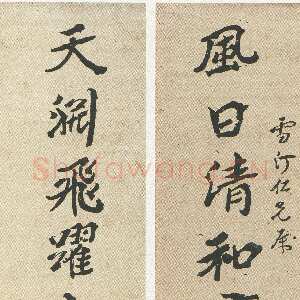 風日清和
雪汀仁兄属
天淵飛躍
Shufawang.ru